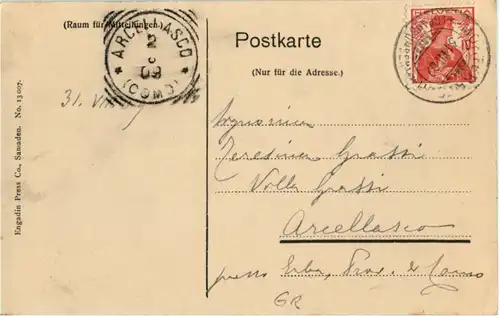 (Raum für Mitteilungen.)
ARCELLASCO
2
C
09
(COMO)
31. VII
Engadin Press Co., Samaden. No. 13 007.
Postkarte
(Nur für die Adresse.)
HELVETIA
Signorina
Teresina Grassi
Villa Grassi
Arcellasco
presso Erba, Prov. di Como
GR